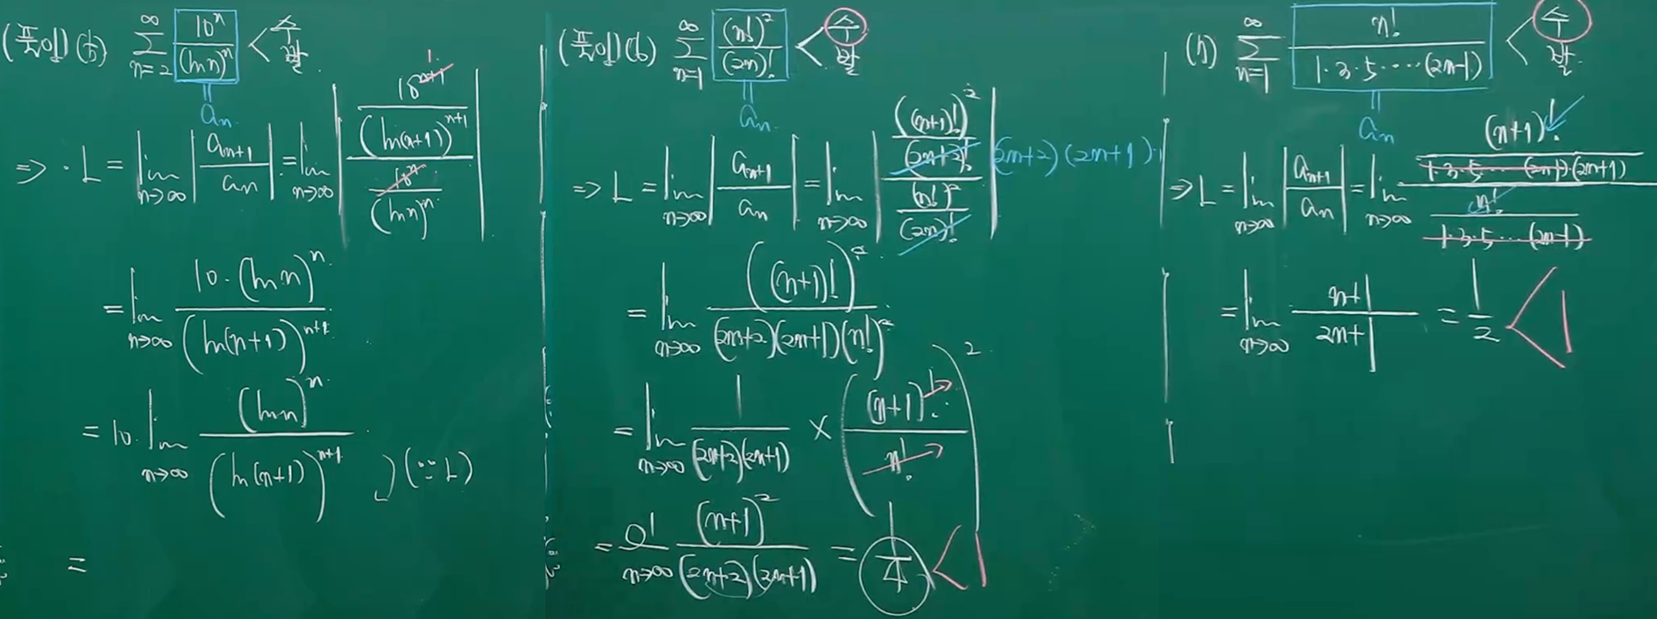 (풀이) (b) $\sum_{n=2}^{\infty} \frac{10^n}{(\ln n)^n}$ < 수 발
∥ a_n
⇒ · L = $\lim_{n→∞} \left| \frac{a_{n+1}}{a_n} \right| = \lim_{n→∞} \left| \frac{\frac{10^{n+1}}{(\ln(n+1))^{n+1}}}{\frac{10^n}{(\ln n)^n}} \right|$
= $\lim_{n→∞} \frac{10·(\ln n)^n}{(\ln(n+1))^{n+1}}$
= 10·$\lim_{n→∞} \frac{(\ln n)^n}{(\ln(n+1))^{n+1}}$ (∵ L)
=
(풀이) (b) $\sum_{n=1}^{\infty} \frac{(n!)^2}{(2n)!}$ < 수 발
∥ a_n
⇒ L = $\lim_{n→∞} \left| \frac{a_{n+1}}{a_n} \right| = \lim_{n→∞} \left| \frac{\frac{((n+1)!)^2}{(2n+2)!}}{\frac{(n!)^2}{(2n)!}} \right|$ (2n+2)(2n+1)
= $\lim_{n→∞} \frac{((n+1)!)^2}{(2n+2)(2n+1)(n!)^2}$
= $\lim_{n→∞} \frac{1}{(2n+2)(2n+1)} × \left( \frac{(n+1)!}{n!} \right)^2$
= $\lim_{n→∞} \frac{(n+1)^2}{(2n+2)(2n+1)} = \frac{1}{4} < 1$
(h) $\sum_{n=1}^{\infty} \frac{n!}{1·3·5·····(2n-1)}$ < 수 발
∥ a_n
⇒ L = $\lim_{n→∞} \left| \frac{a_{n+1}}{a_n} \right| = \lim_{n→∞} \frac{\frac{(n+1)!}{1·3·5····(2n-1)(2n+1)}}{\frac{n!}{1·3·5···(2n-1)}}$
= $\lim_{n→∞} \frac{n+1}{2n+1} = \frac{1}{2} < 1$